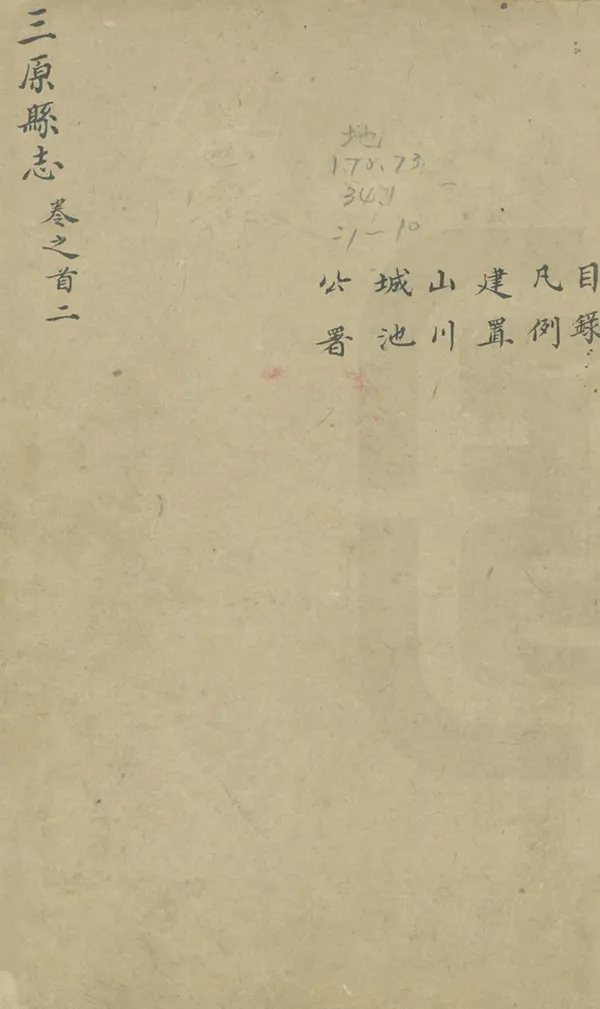 目錄
凡例
建置
山川
城池
公署
地
170.73
34.1
:1-10
三原縣志
卷之首二